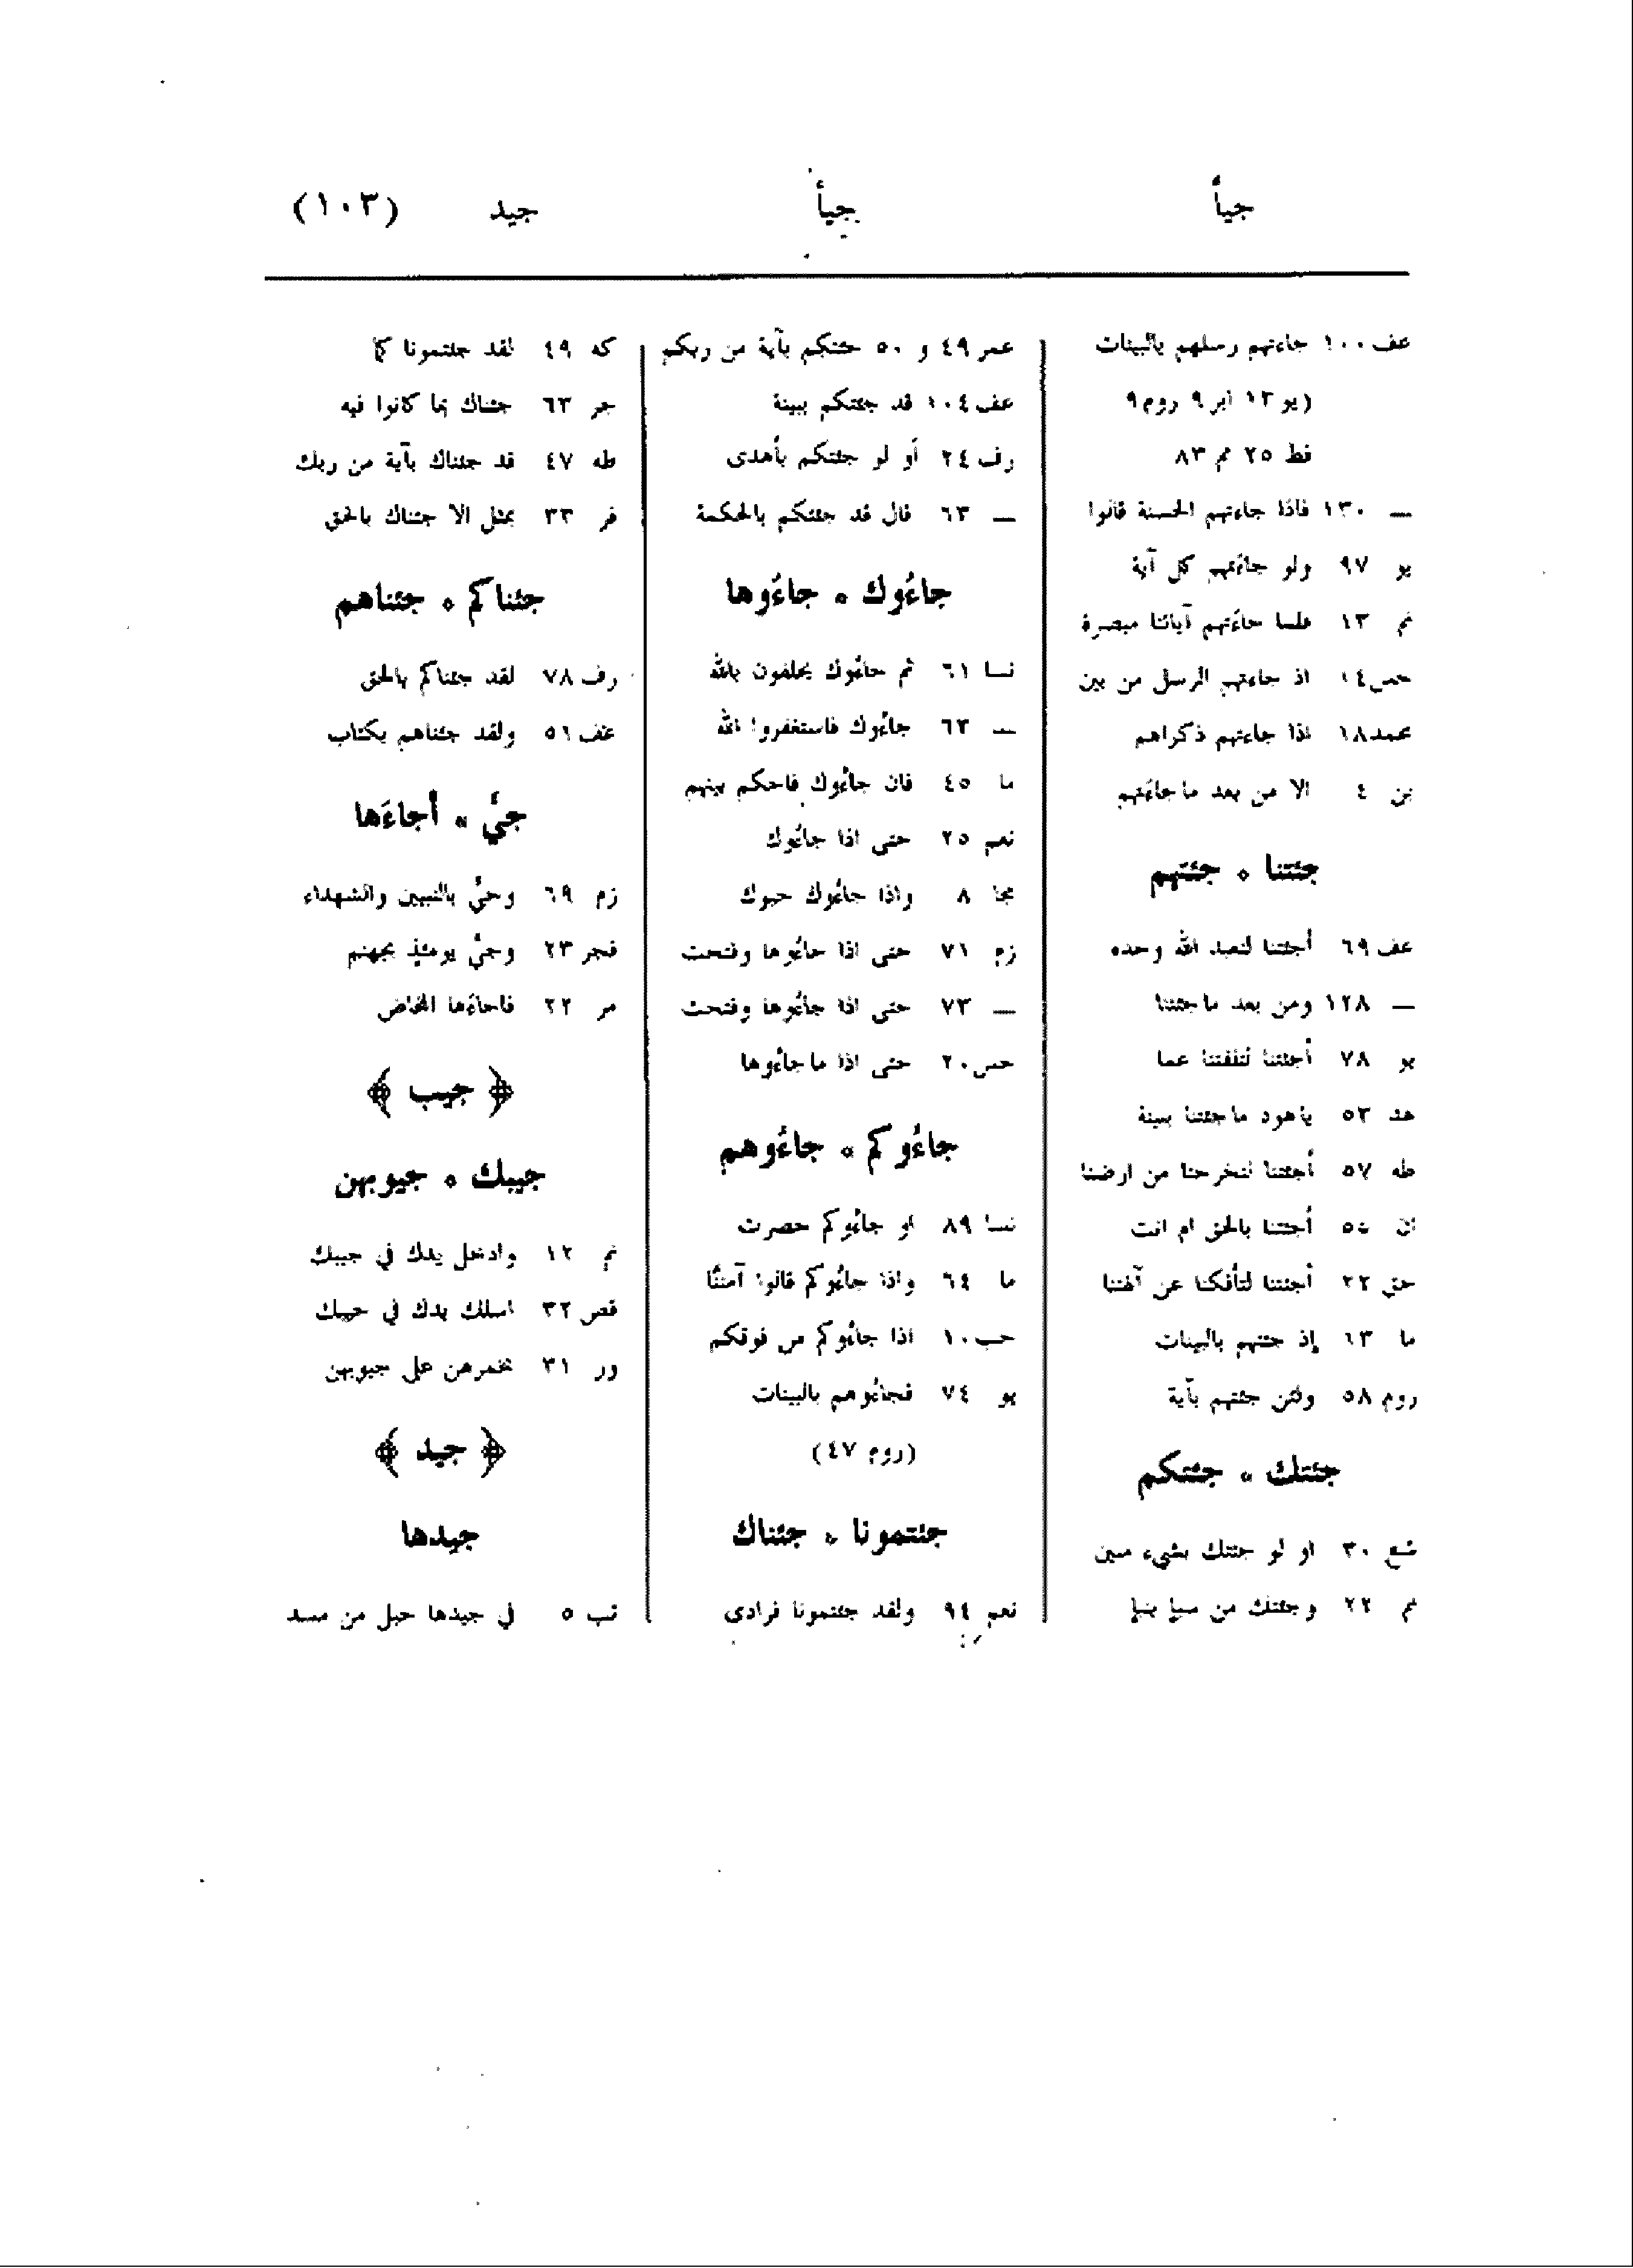 جيأ جيأ جيد (١٠٣)
عف ١٠٠ جاءتهم رسلهم بالبينات
(يو ١٣ ابر ٩ روم ٩
فط ٢٥ مم ٨٣
— ١٣٠ فاذا جاءتهم الحسنة قالوا
يو ٩٧ ولو جاءَتهم كل آية
نم ١٣ فلما جاءَتهم آياتنا مبصرة
حص ١٤ اذ جاءتهم الرسل من بين
محمد ١٨ اذا جاءتهم ذكراهم
بن ٤ الا من بعد ما جاءَتهم
جئتنا ٭ جئتهم
عف ٦٩ أجئتنا لنعبد الله وحده
— ١٢٨ ومن بعد ما جئتنا
يو ٧٨ أجئتنا لتلفتنا عما
هد ٥٣ ياهود ما جئتنا ببينة
طه ٥٧ أجئتنا لتخرجنا من ارضنا
ان ٥٥ أجئتنا بالحق ام انت
حق ٢٢ أجئتنا لتأفكنا عن آلهتنا
ما ١١٣ إذ جئتهم بالبينات
روم ٥٨ ولئن جئتهم بآية
جئتك ٭ جئتكم
شع ٣٠ او لو جئتك بشيء مبين
نم ٢٢ وجئتك من سبإ بنبإ
عمر ٤٩ و ٥٠ جئتكم بآية من ربكم
عف ١٠٤ قد جئتكم ببينة
رف ٢٤ أو لو جئتكم بأهدى
— ٦٣ قال قد جئتكم بالحكمة
جاءُوك ٭ جاءُوها
نسا ٦١ ثم جاءُوك يحلفون بالله
— ٦٣ جاءُوك فاستغفروا الله
ما ٤٥ فان جاءُوك فاحكم بينهم
نعم ٢٥ حتى اذا جاءُوك
مجا ٨ واذا جاءُوك حيوك
زم ٧١ حتى اذا جاءُوها وفتحت
— ٧٣ حتى اذا جاءُوها وفتحت
حس ٢٠ حتى اذا ما جاءُوها
جاءُوكم ٭ جاءُوهم
نسا ٨٩ او جاءُوكم حصرت
ما ٦٤ واذا جاءُوكم قالوا آمنَّا
حب ١٠ اذا جاءُوكم من فوقكم
يو ٧٤ فجاءُوهم بالبينات
(روم ٤٧)
جئتمونا ٭ جئناك
نعم ٩٤ ولقد جئتمونا فرادى
كه ٤٩ لقد جئتمونا كما
جر ٦٣ جئناك بما كانوا فيه
طه ٤٧ قد جئناك بآية من ربك
فر ٣٣ بمثل الا جئناك بالحق
جئناكم ٭ جئناهم
رف ٧٨ لقد جئناكم بالحق
عف ٥١ ولقد جئناهم بكتاب
جيَّ ٭ أجاءَها
زم ٦٩ وجيَّ بالنبيين والشهداء
فجر ٢٣ وجيَّ يومئذٍ بجهنم
مر ٢٢ فاجاءَها المخاض
﴿ جيب ﴾
جيبك ٭ جيوبهن
نم ١٢ وادخل يدك في جيبك
قص ٣٢ اسلك يدك في جيبك
ور ٣١ بخمرهن على جيوبهن
﴿ جيد ﴾
جيدها
تب ٥ في جيدها حبل من مسد